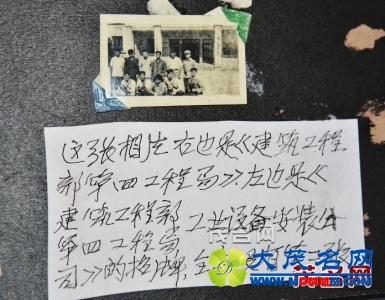 这张相片右边是《建筑工程
部第四工程局》左边是《
建筑工程部 工业设备安装公
第四工程局
司》的招牌
大茂名网